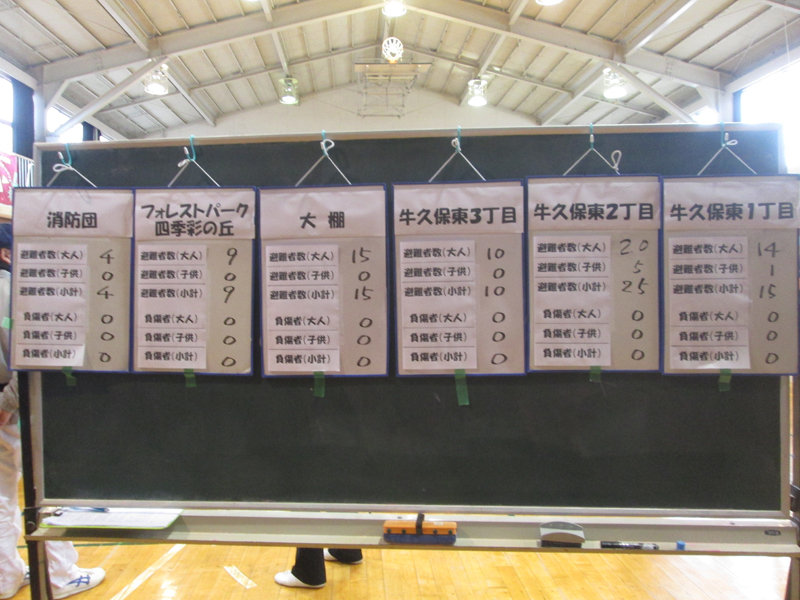 消防団
避難者数(大人) 4
避難者数(子供) 0
避難者数(小計) 4
負傷者(大人) 0
負傷者(子供) 0
負傷者(小計) 0
フォレストパーク
四季彩の丘
避難者数(大人) 9
避難者数(子供) 0
避難者数(小計) 9
負傷者(大人) 0
負傷者(子供) 0
負傷者(小計) 0
大棚
避難者数(大人) 15
避難者数(子供) 0
避難者数(小計) 15
負傷者(大人) 0
負傷者(子供) 0
負傷者(小計) 0
牛久保東3丁目
避難者数(大人) 10
避難者数(子供) 0
避難者数(小計) 10
負傷者(大人) 0
負傷者(子供) 0
負傷者(小計) 0
牛久保東2丁目
避難者数(大人) 20
避難者数(子供) 5
避難者数(小計) 25
負傷者(大人) 0
負傷者(子供) 0
負傷者(小計) 0
牛久保東1丁目
避難者数(大人) 14
避難者数(子供) 1
避難者数(小計) 15
負傷者(大人) 0
負傷者(子供) 0
負傷者(小計) 0